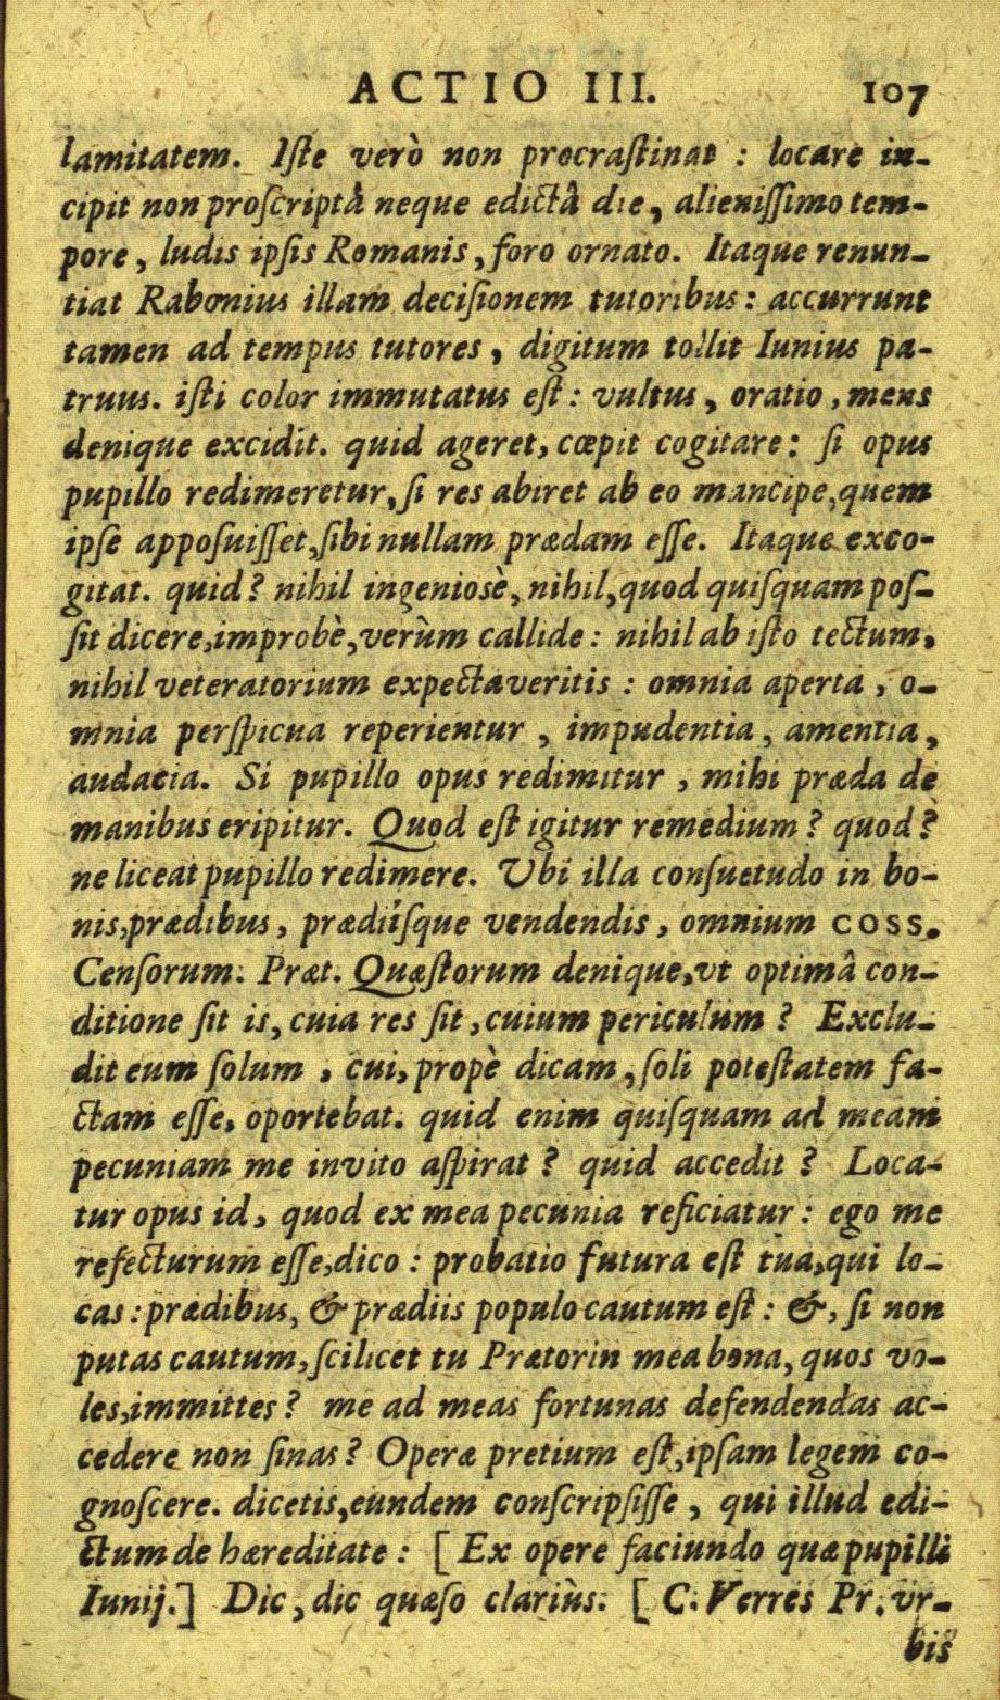 ACTIO III. 107
lamitatem. Iſte verò non procraſtinat : locare in-
cipit non proſcriptâ neque edictâ die, alieniſſimo tem-
pore, ludis ipſis Romanis, foro ornato. Itaque renun-
tiat Rabonius illam deciſionem tutoribus: accurrunt
tamen ad tempus tutores, digitum tollit Iunius pa-
truus. iſti color immutatus eſt: vultus, oratio, mens
denique excidit. quid ageret, cœpit cogitare: ſi opus
pupillo redimeretur, ſi res abiret ab eo mancipe, quem
ipſe appoſuiſſet, ſibi nullam prædam eſſe. Itaque exco-
gitat. quid? nihil ingeniosè, nihil, quod quiſquam poſ-
ſit dicere, improbè, verùm callide: nihil ab iſto tectum,
nihil veteratorium expectaveritis : omnia aperta, o-
mnia perſpicua reperientur, impudentia, amentia,
audacia. Si pupillo opus redimitur, mihi præda de
manibus eripitur. Quod eſt igitur remedium? quod?
ne liceat pupillo redimere. Ubi illa conſuetudo in bo-
nis, prædibus, prædiíſque vendendis, omnium COSS.
Cenſorum. Præt. Quæſtorum denique, vt optimâ con-
ditione ſit is, cuia res ſit, cuium periculum? Exclu-
dit eum ſolum, cui, propè dicam, ſoli poteſtatem fa-
ctam eſſe, oportebat. quid enim quiſquam ad meam
pecuniam me invito aſpirat? quid accedit? Loca-
tur opus id, quod ex mea pecunia reficiatur: ego me
refecturum eſſe, dico : probatio futura eſt tua, qui lo-
cas: prædibus, & prædiis populo cautum eſt: &, ſi non
putas cautum, ſcilicet tu Prætorin mea bona, quos vo-
les, immittes? me ad meas fortunas defendendas ac-
cedere non ſinas? Operæ pretium eſt, ipſam legem co-
gnoſcere. dicetis, eundem conſcripſiſſe, qui illud edi-
ctum de hæreditate : [Ex opere faciundo quæ pupilli
Iunij.] Dic, dic quæſo clariùs. [C. Verres Pr. vr-
bis